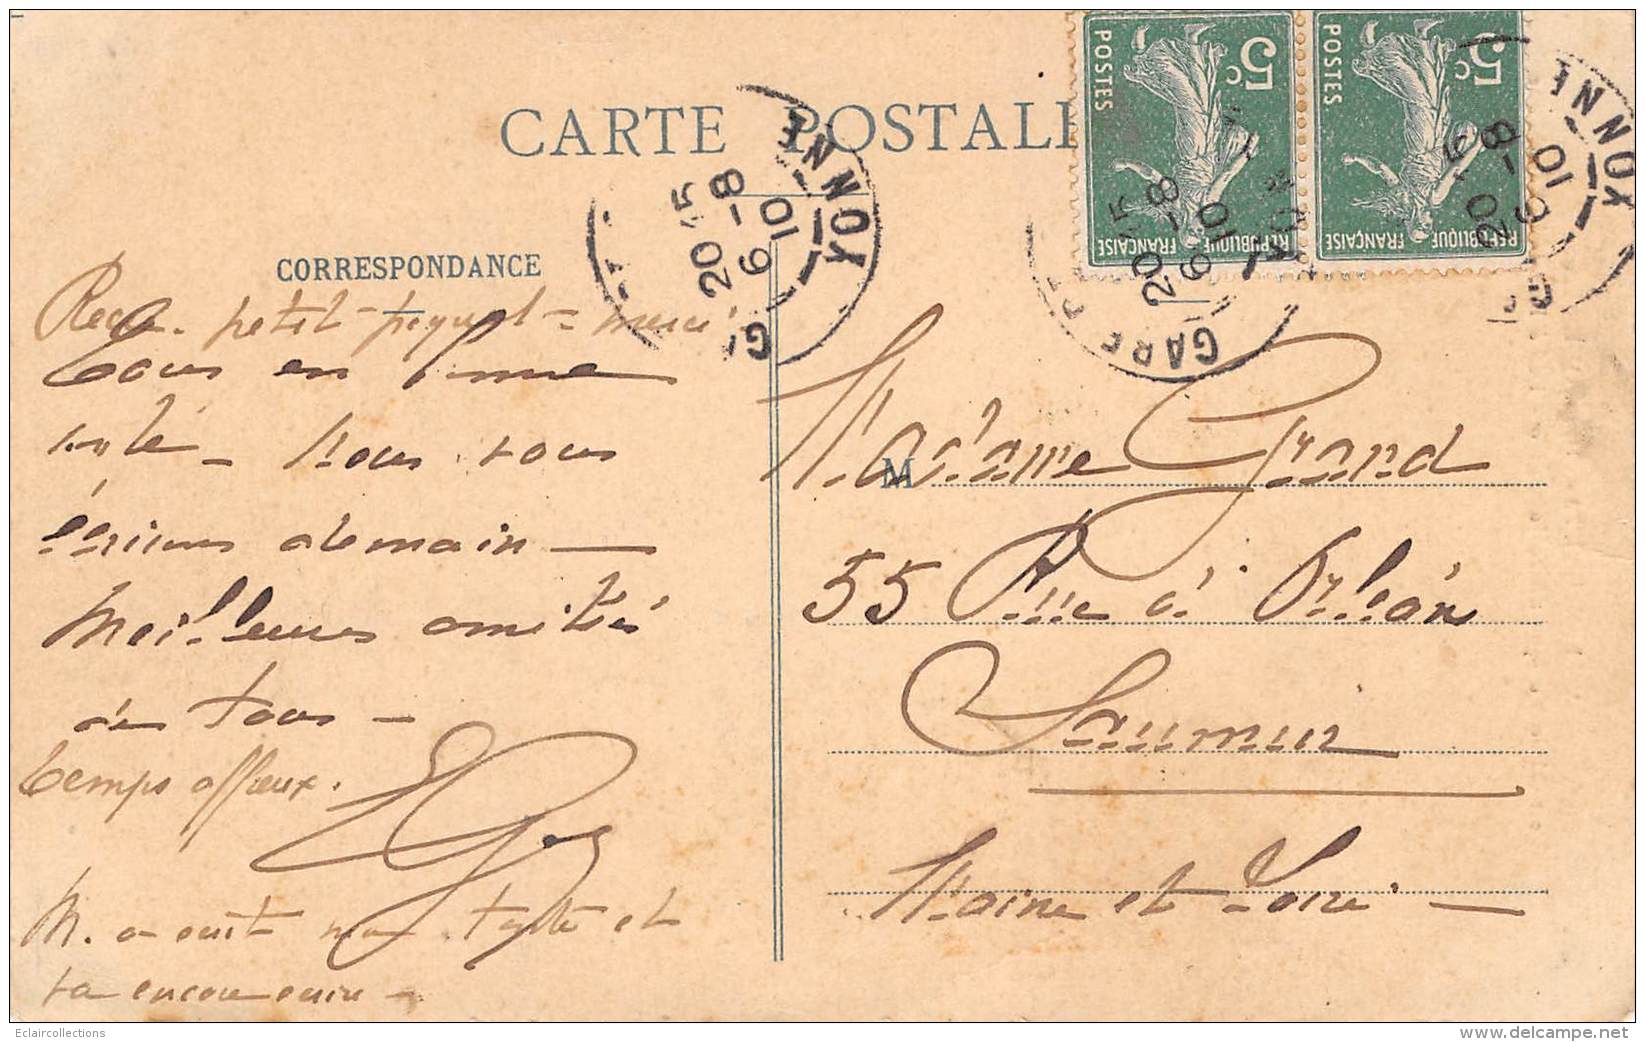 CARTE POSTALE
POSTES
5c
RÉPUBLIQUE FRANÇAISE
POSTES
5c
RÉPUBLIQUE FRANÇAISE
YONNE
20 15
6 - 8
10
GARE
YONNE
20 15
6 - 8
10
YONNE
20 15
6 - 8
10
CORRESPONDANCE
petit paquet - merci
Tous en bonne
santé - Nous vous
écrirons demain -
Meilleures amitiés
de tous -
Temps affreux.
M. a écrit
va encore écrire -
M
Madame Grand
55 Rue d'Orléans
Saumur
Maine et Loire -
Eclaircollections
www.delcampe.net